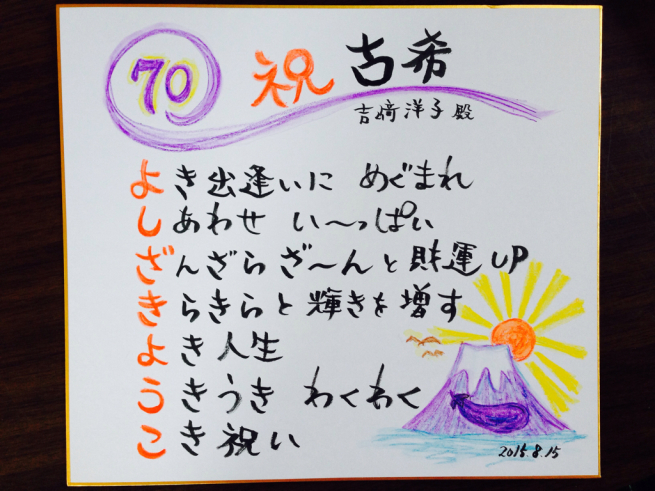 70
祝 古希
吉﨑洋子殿
よき出逢いに めぐまれ
しあわせ い〜っぱい
ざんざらざ〜んと財運UP
きらきらと輝きを増す
よき人生
うきうき わくわく
こき祝い
2015.8.15